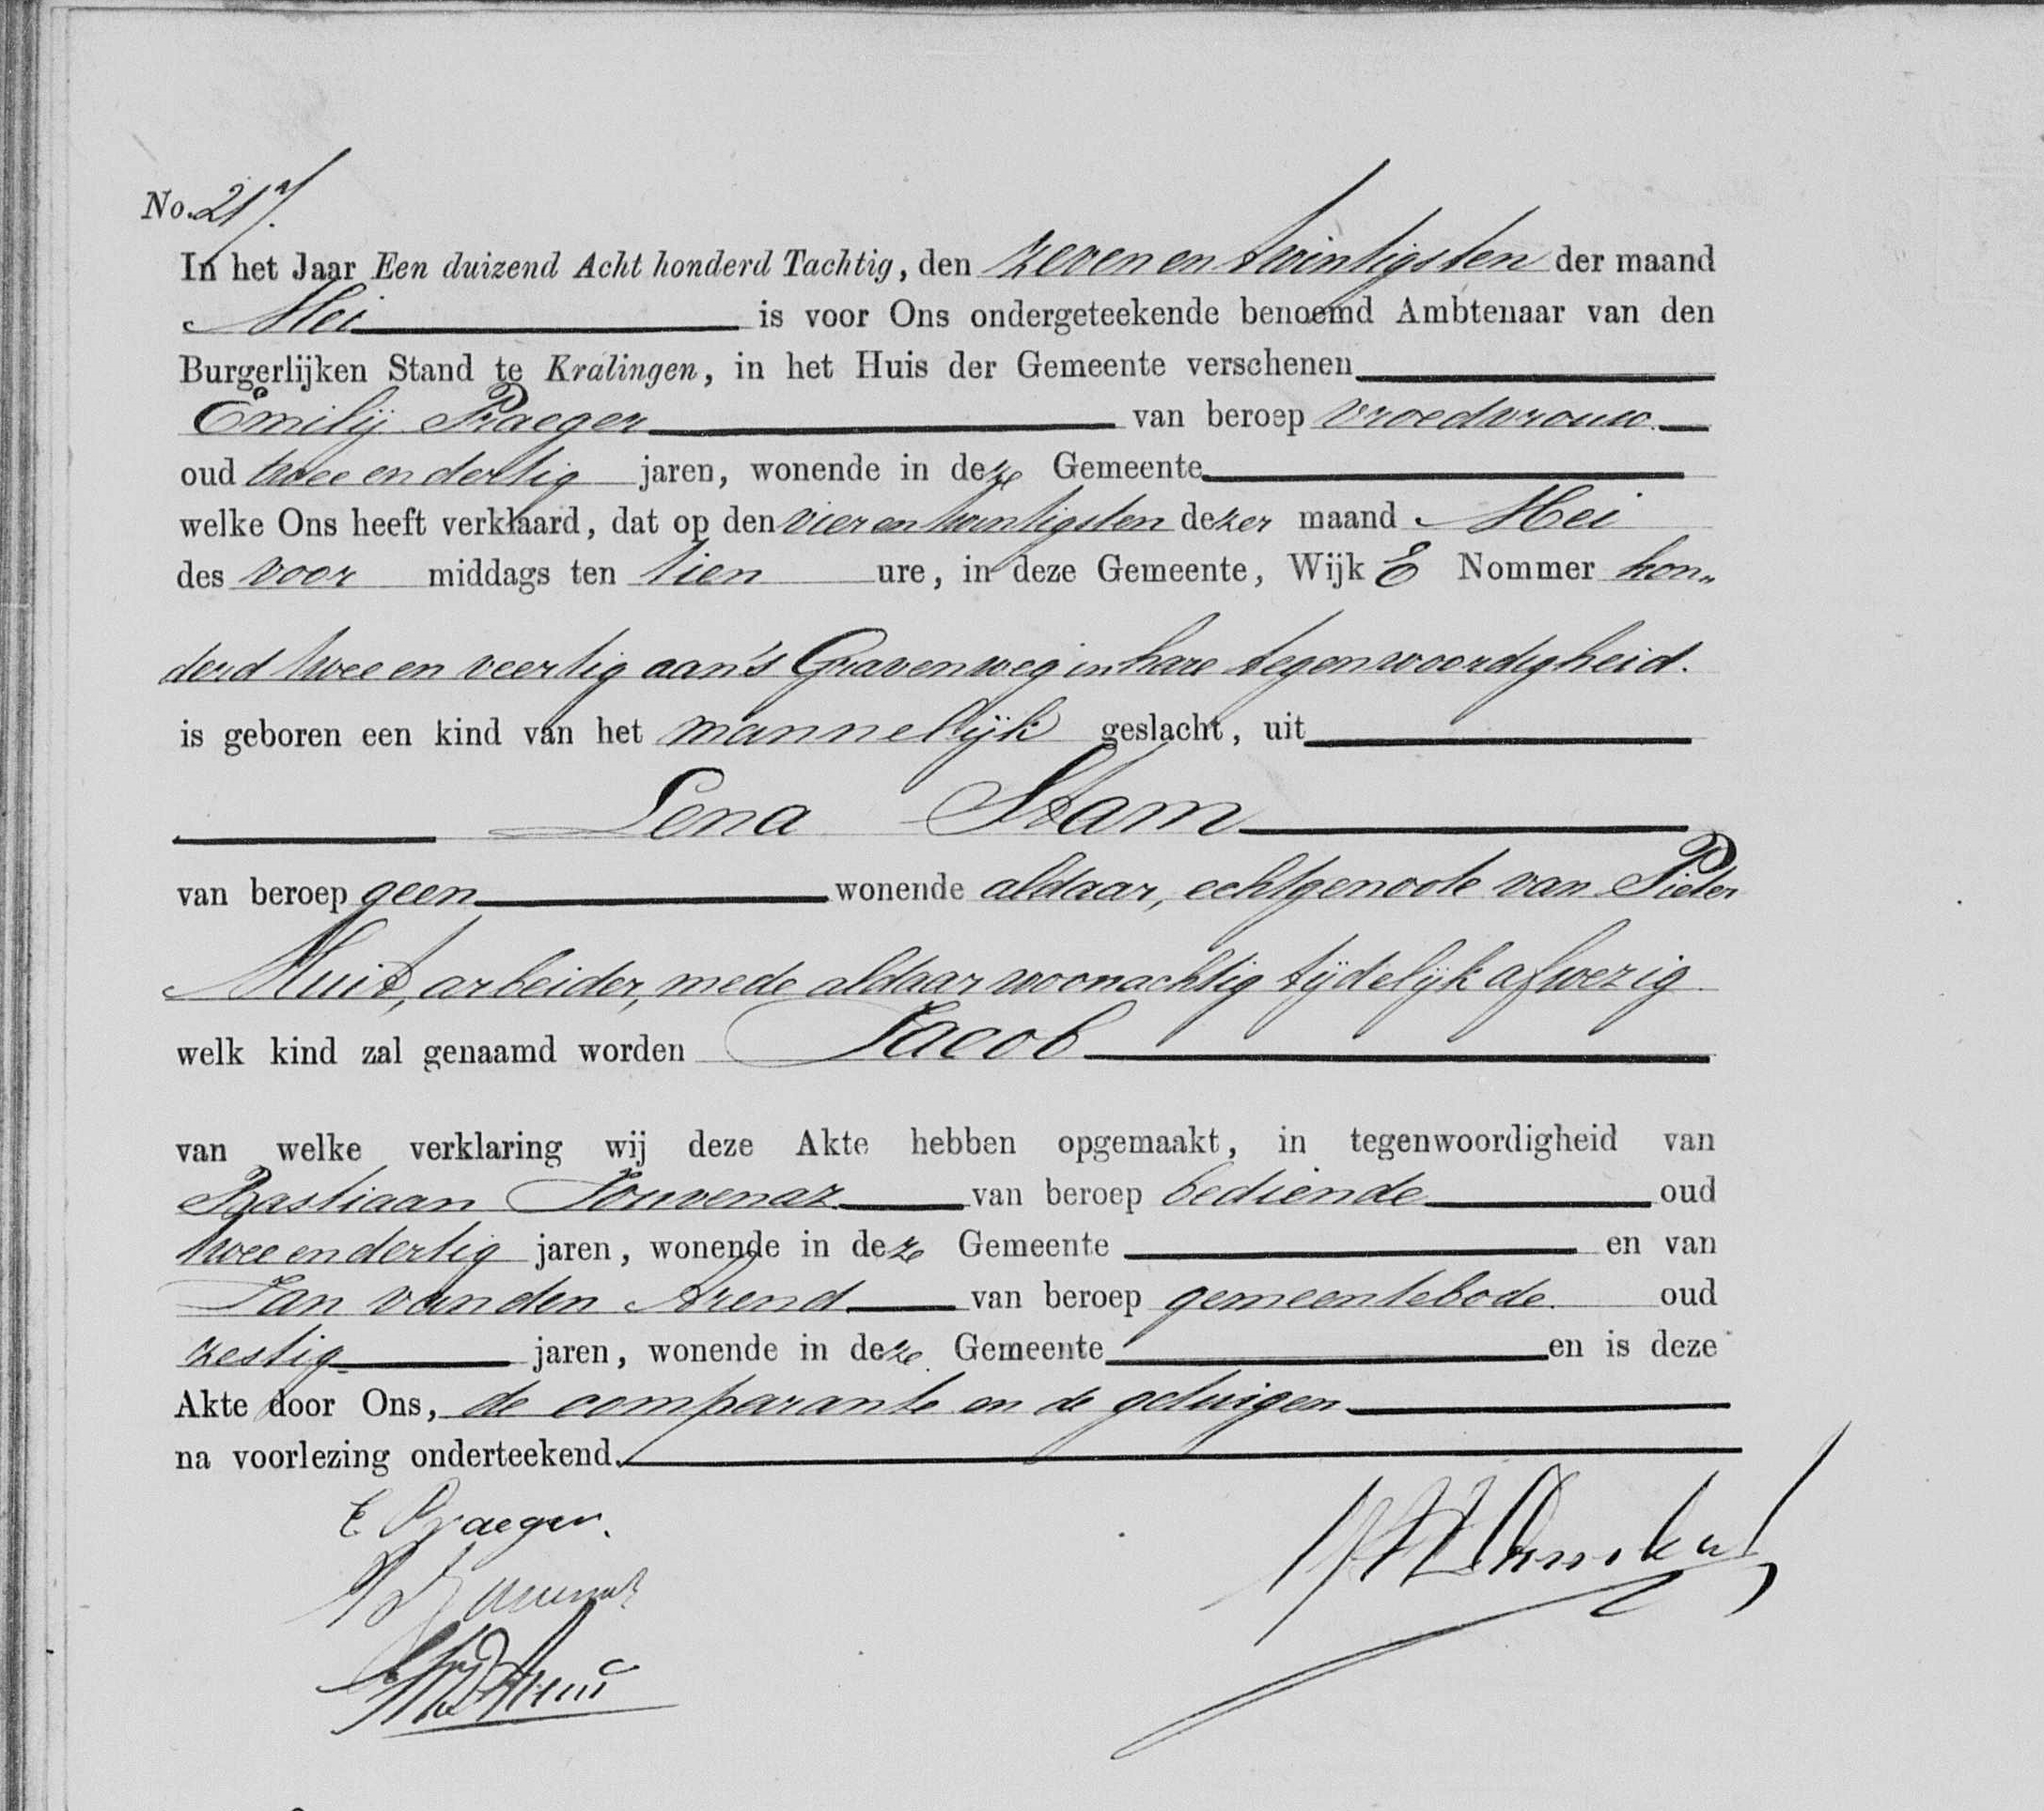 No. 217.
In het Jaar Een duizend Acht honderd Tachtig, den zeven en twintigsten der maand
Mei is voor Ons ondergeteekende benoemd Ambtenaar van den
Burgerlijken Stand te Kralingen, in het Huis der Gemeente verschenen
Emilij Praeger van beroep vroedvrouw.
oud twee en dertig jaren, wonende in deze Gemeente
welke Ons heeft verklaard, dat op den vier en twintigsten dezer maand Mei
des voor middags ten tien ure, in deze Gemeente, Wijk E Nommer hon„
derd twee en veertig aan 's Gravenweg in hare tegenwoordigheid.
is geboren een kind van het mannelijk geslacht, uit
Lena Stam
van beroep geen wonende aldaar, echtgenoote van Pieter
Muit, arbeider, mede aldaar woonachtig tijdelijk afwezig
welk kind zal genaamd worden Jacob
van welke verklaring wij deze Akte hebben opgemaakt, in tegenwoordigheid van
Bastiaan Jouvenaz van beroep bediende oud
twee en dertig jaren, wonende in deze Gemeente en van
Jan van den Arend van beroep gemeentebode. oud
zestig jaren, wonende in deze Gemeente en is deze
Akte door Ons, de comparante en de getuigen
na voorlezing onderteekend.
E Praeger.